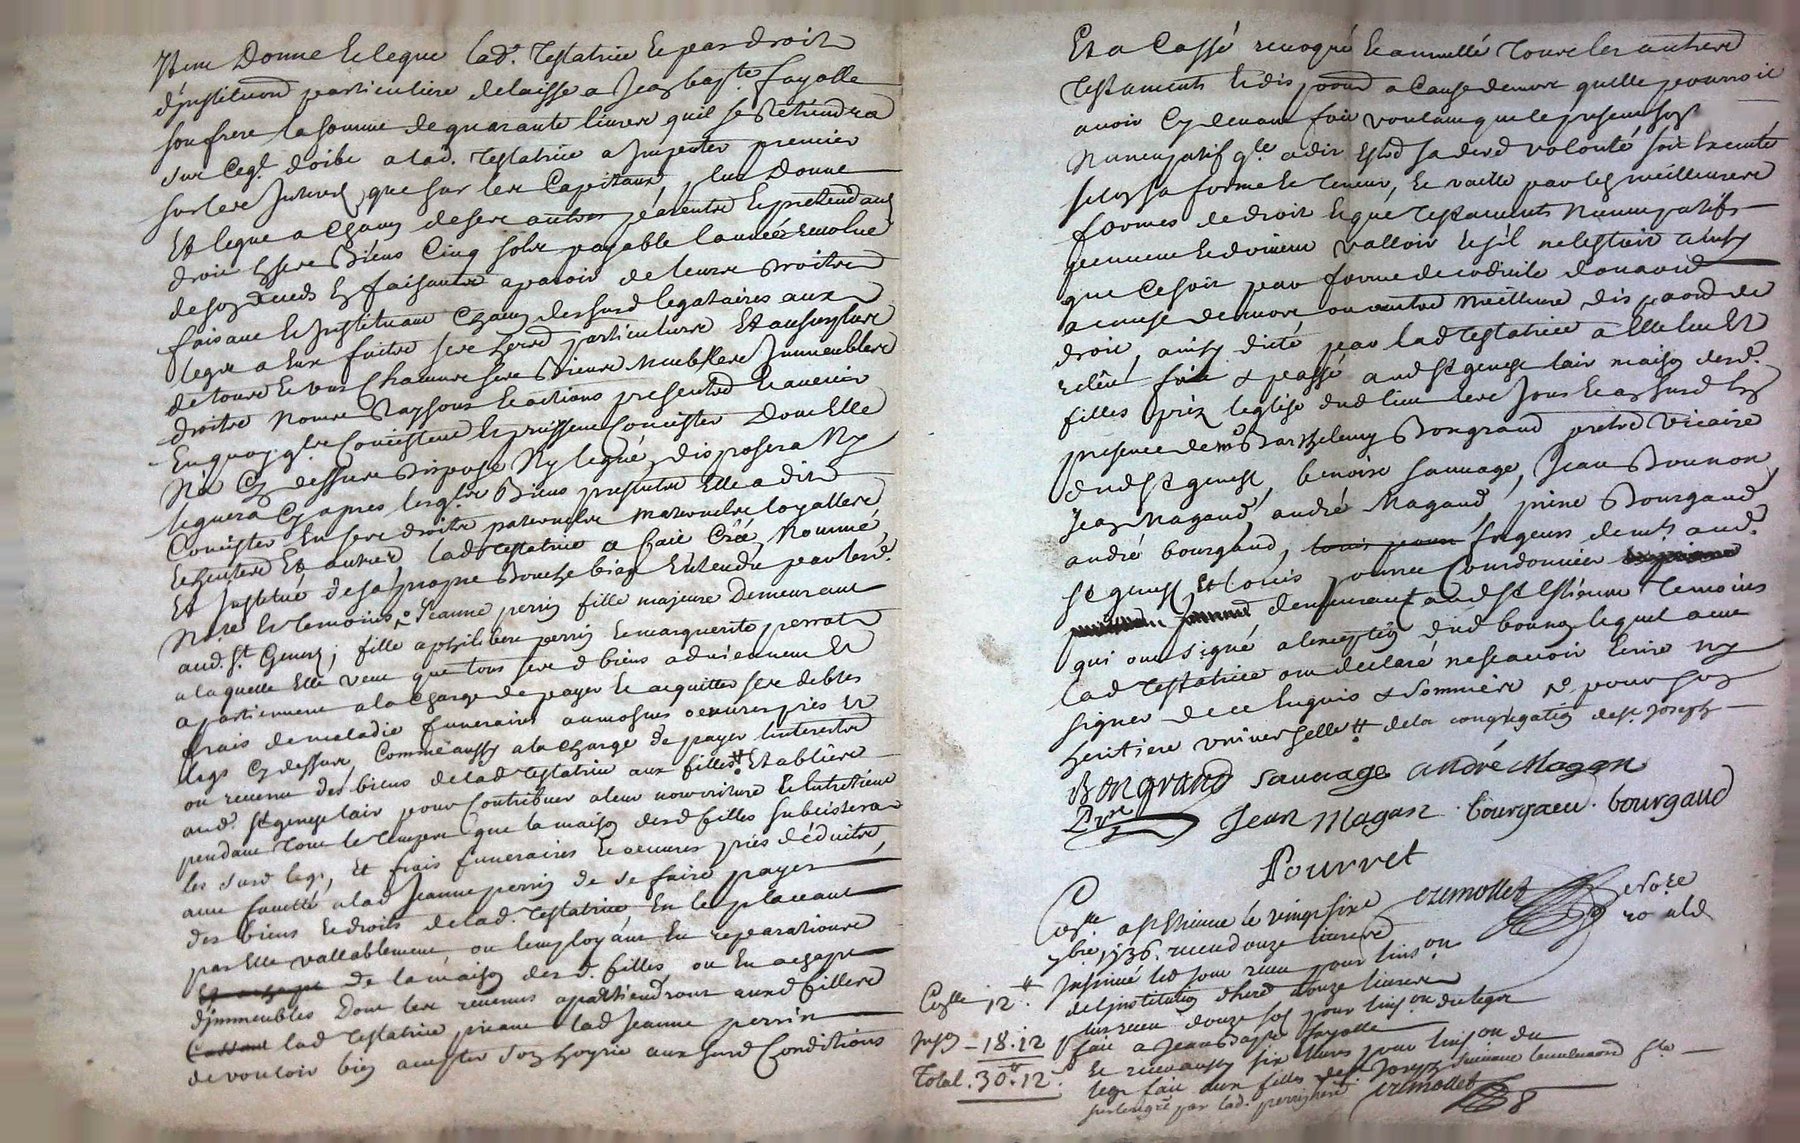 Item Donne et legue lad.e Testatrice et par droit
d'institution particuliere delaisse a Jean bapte. fayolle
son frere la somme de quarante livres quil se Retiendra
sur Ceql. doibt a lad. Testatrice a Imputer premier
sur les Interests que sur les Capitaux, plus Donne
Et legue a Chacun de ses autres parents et pretendants
droit sur ses Biens Cinq sols payable lannée revolue
de son deceds En faisants aparoir de leurs Droits
faisant et Instituant Chacun desd legataires aux
legs a Eux faits ses hers particuliers Et au surplus
de tous et uns Chacuns ses Biens Meubles Immeubles
droits Noms Raysons et actions presents et avenir
En quoy ql. Concistent et puissent Concister Dont Elle
Na Cy dessus Dispose Ny legué, disposera Ny
leguera Cy apres lesql. Biens presents Elle a dit
Concister En ses droits paternels maternels loyallere
Et Institué de sa propre Bouche bien Entendu par lesd.
Nore. Et temoins, Jeanne perrin fille majeure Demeurant
aud. St. Genest; fille a philibert perrin et marguerite perrot
a laquelle Elle veut que tous sesd biens adviennent Et
apartiennent a la Charge de payer et acquitter ses debtes
frais de maladie funeraires aumosnes oeuvres pies Et
legs Cy dessus, Comme aussy a la charge de payer linterest
ou revenu des biens de lad Testatrice aux filles # Etablies
aud. St genest lair pour Contribuer a leur nourriture Et Entretient
pendant Tout le temps que la maison desd filles subcistera
les susd legs, Et frais funeraires Et oeuvres pies déduits,
avec faculté a lad Jeanne perrin de se faire payer
des biens Et droits de lad. Testatrice En les placeant
par Elle vallablement, ou Employant En reparations
de la maison desd. filles, ou En achapt
d'immeubles Dont les revenus apartiendront auxd filles
lad Testatrice priant lad Jeanne perrin
de vouloir bien accepter son hoyrie aux susd Conditions
Et a Cassé revoqué Et annullé Tous les autres
Testaments Et disp.ons a Cause de mort quelle pourroit
avoir Cy devant fait voulant que le present soit
Nuncupatif ql. a dit Estre sa derd volonté soit Executé
selon sa forme Et Teneur, Et vaille par les meilleures
formes de droit Et que Testaments Nuncupatifs
peuvent Et doivent valloir Et sil ne lestoit ainsy
que Ce soit par forme de codicile donaon
a cause de mort ou autre meilleure disp.aon de
droit, ainsy dicté par lad Testatrice a Elle leu Et
releu fait & passé aud St genest lair maison desd.
filles prez leglise dud lieu les Jour Et an susd En
presence de mr Barthelemy Bongrand prêtre Vicaire
dud St genest, benoist Sauvage, Jean Bounon,
Jean Magand, andré Magand, pierre Bourgaud,
andré bourgaud, aud.
St genest Et Louis pourret Courdonnier
demeurant aud St Estienne Temoins
qui ont signé a lexception dud bounon lequel avec
lad Testatrice ont declaré ne scavoir Ecrire ny
signer de ce Enquis & Sommés pour son
heritiere universelle # de la congregation de St. Joseph
Bongrand Sauvage andré Magan
Vre
Jean Magan . bourgaud . bourgaud
Pourret
Colle a St Etienne le vingt six cremollet
9bre 1736. receu douze livres
Insinué led jour receu pour lins.on
de linstitution dhers douze livres
plus receu douze sols pour lins.on du legs
fait a Jean Bapte fayolle
Et receu aussy six livres pour lins.on du
legs fait aux filles de St Joseph
par lad. perrin cremollet
Colle 12tt.
Insn - 18.12
Total. 30tt.12.